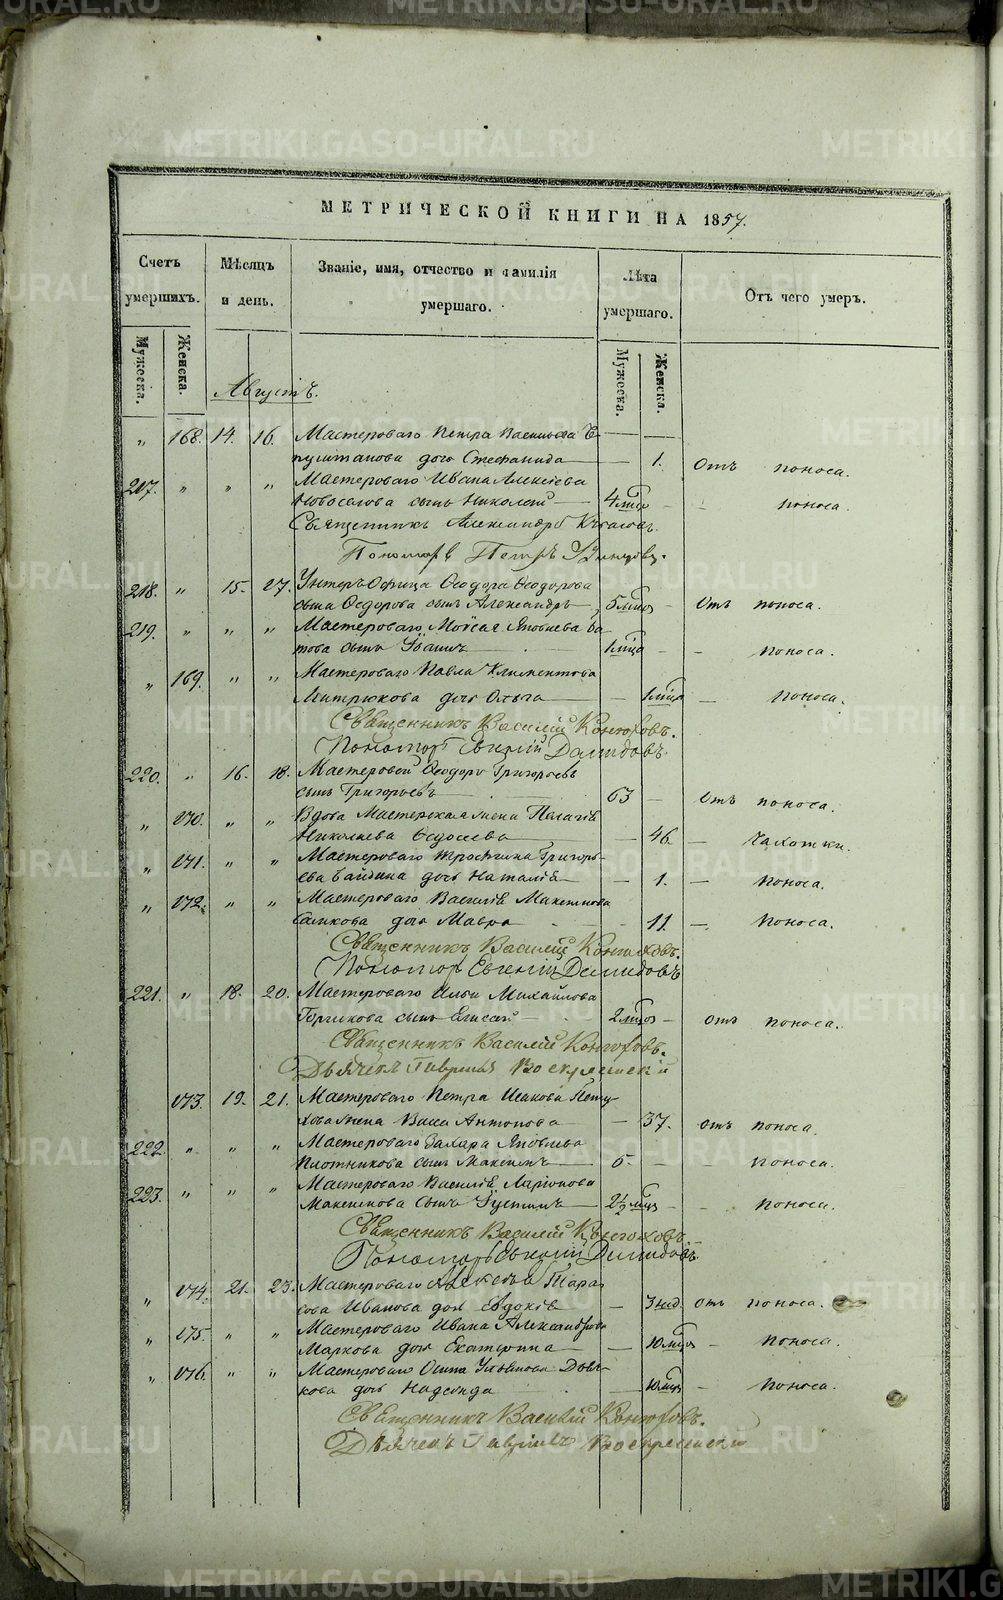 МЕТРИЧЕСКОЙ КНИГИ НА 1857.
Счетъ умершихъ.
Мѣсяцъ и день.
Званіе, имя, отчество и фамилія умершаго.
Лѣта умершаго.
Отъ чего умеръ.
Мужеска.
Женска.
Мужеска.
Женска.
Августъ.
„ 168. 14. 16. Мастероваго Петра Васильева
дочь Стефанида — 1. Отъ поноса.
217. „ „ „ Мастероваго Ивана Алексѣева
Новоселова сынъ Николай — 4 мцо — поноса.
Священникъ Александръ
Пономарь Петръ
218. „ 15. 17. Унтеръ Офица Ѳеодора Ѳеодорова
сына Ѳедорова сынъ Александръ 5 мцов — Отъ поноса.
219. „ „ „ Мастероваго Моѵсея Яковлева Ба-
това сынъ Іоаннъ 1 мцо — — поноса.
„ 169. „ „ Мастероваго Павла Климентова
Митрюкова дочь Ольга — 1 мцо — поноса.
Священникъ Василій Конюховъ.
Пономарь Евгеній Демидовъ.
220. „ 16. 18. Мастеровой Ѳеодоръ Григорьевъ
сынъ Григорьевъ 63 — Отъ поноса.
„ 170. „ „ Вдова Мастерская жена Пелагія
Николаева Ѳедосеева — 46. — Чахотки.
„ 171. „ „ Мастероваго Трофима Григорь-
ева дочь Наталія — 1. — поноса.
„ 172. „ „ Мастероваго Василія Максимова
дочь Мавра — 11. — поноса.
Священникъ Василій Конюховъ.
Пономарь Евгеній Демидовъ
221. „ 18. 20. Мастероваго Ильи Михайлова
сынъ Елисей — 2 мцов — отъ поноса.
Священникъ Василій Конюховъ.
Дьячекъ Гавріилъ Воскресенскій
173. 19. 21. Мастероваго Петра Исакова Пету-
хова жена Васса Антонова — 37. отъ поноса.
222. „ „ „ Мастероваго Захара Яковлева
Плотникова сынъ Максимъ — 5. — — поноса.
223. „ „ „ Мастероваго Василія Ларіонова
Максимова сынъ Іустинъ — 2½ мцз — поноса.
Священникъ Василій Конюховъ.
Пономарь Евгеній Демидовъ.
„ 174. 21. 23. Мастероваго Алексѣя Тара-
сова Иванова дочь Евдокія — 3 нед. отъ поноса.
„ 175. „ „ Мастероваго Ивана Александрова
Маркова дочь Екатерина — 10 мцов — поноса.
„ 176. „ „ Мастероваго Осипа
дочь Надежда 10 мцо — поноса.
Священникъ Василій Конюховъ.
Дьячекъ Гавріилъ Воскресенскій
METRIKI.GASO-URAL.RU